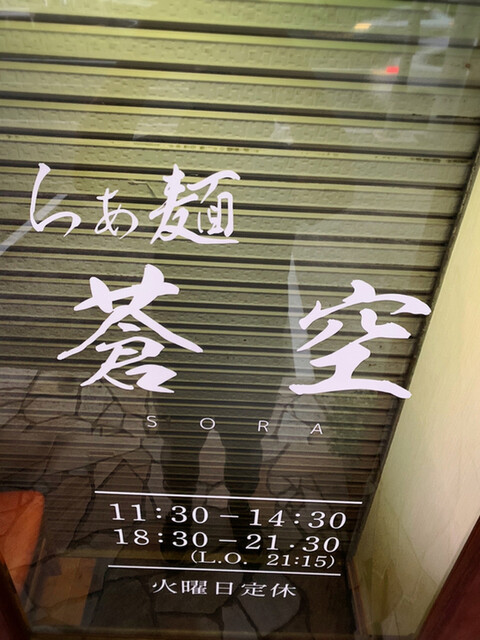 らぁ麺
蒼空
SORA
11:30－14:30
18:30－21.30
(L.O. 21:15)
火曜日定休